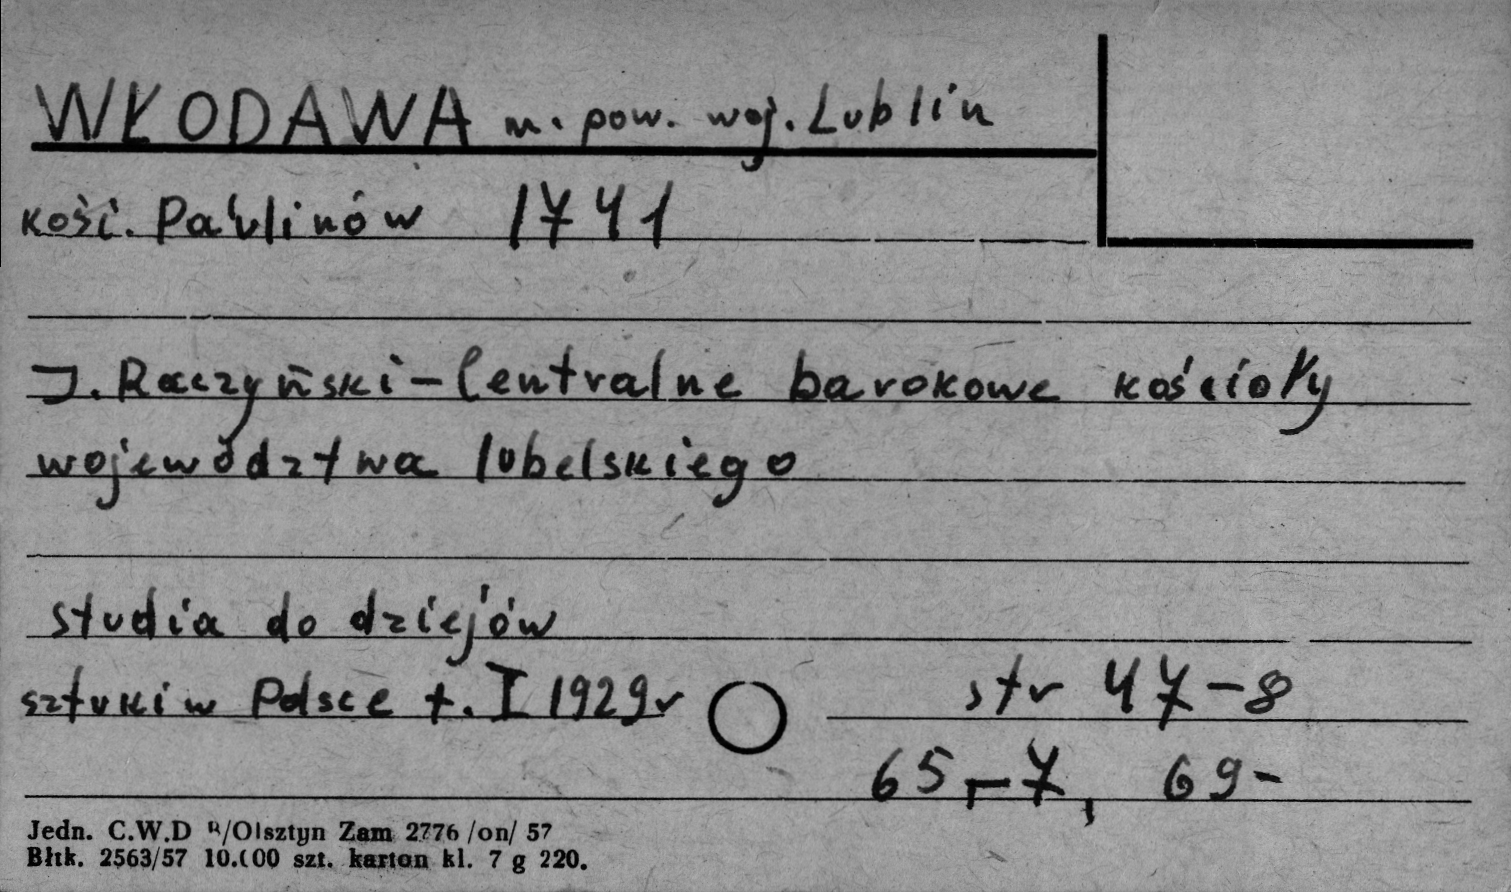 WŁODAWA m. pow. woj. Lublin
kość. Paulinów 1741
J. Raczyński - Centralne barokowe kościoły
województwa lubelskiego
studia do dziejów
sztuki w Polsce t. I 1929 r
str 47-8
65-7, 69-
Jedn. C.W.D /Olsztyn Zam 2776 /on/ 57
Błtk. 2563/57 10.000 szt. karton kl. 7 g 220.